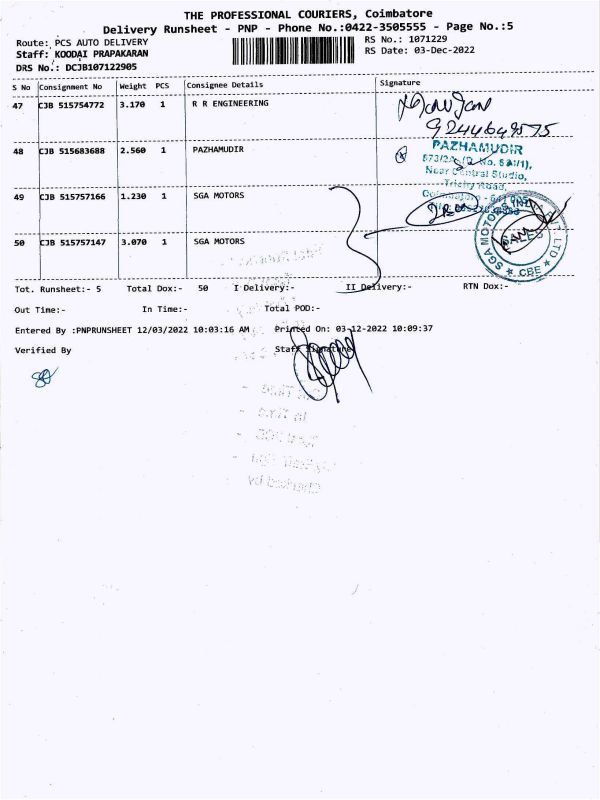 THE PROFESSIONAL COURIERS, Coimbatore
Delivery Runsheet - PNP - Phone No.:0422-3505555 - Page No.:5
Route: PCS AUTO DELIVERY RS No.: 1071229
Staff: KOODAI PRAPAKARAN RS Date: 03-Dec-2022
DRS No.: DCJB107122905
S No Consignment No Weight PCS Consignee Details Signature
47 CJB 515754772 3.170 1 R R ENGINEERING
9244649575
48 CJB 515683688 2.560 1 PAZHAMUDIR
PAZHAMUDIR
Near Central Studio,
Trichy Road,
49 CJB 515757166 1.230 1 SGA MOTORS
50 CJB 515757147 3.070 1 SGA MOTORS
SGA MOTORS IND LTD
SALES
CBE
Tot. Runsheet:- 5 Total Dox:- 50 I Delivery:- II Delivery:- RTN Dox:-
Out Time:- In Time:- Total POD:-
Entered By :PNPRUNSHEET 12/03/2022 10:03:16 AM Printed On: 03-12-2022 10:09:37
Verified By Staff Signature